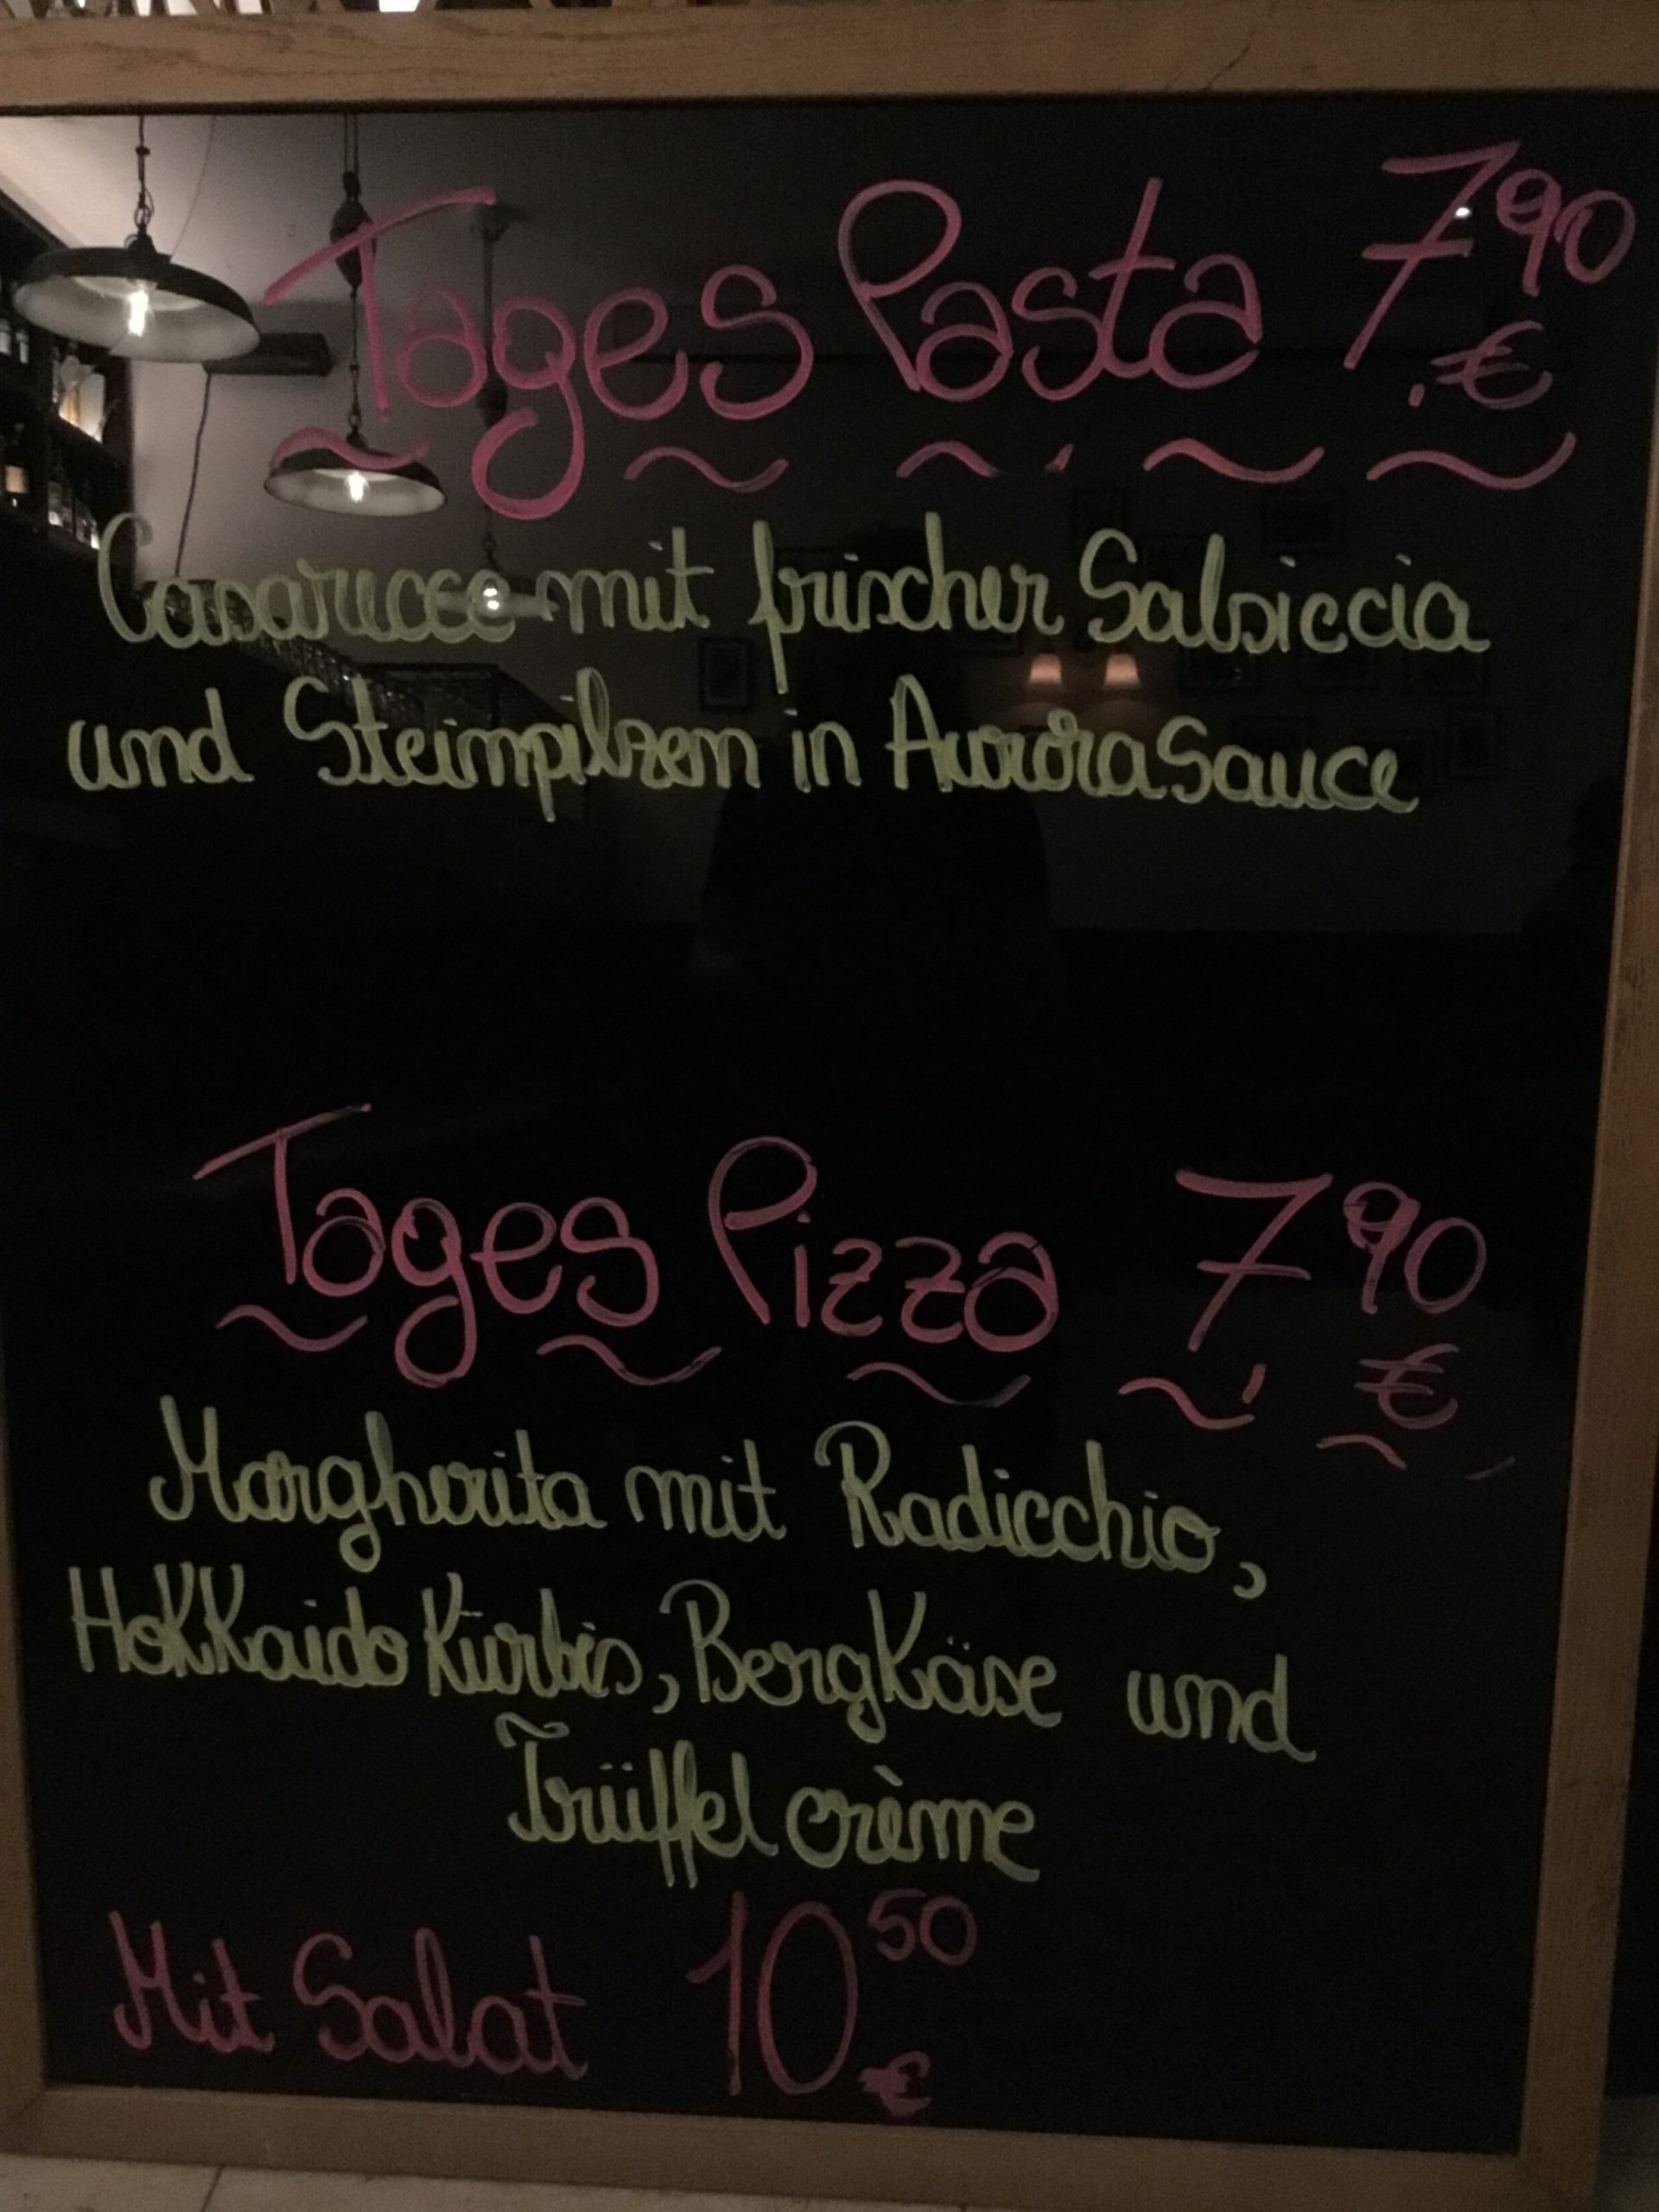 Tages Pasta 7.90 €
Casarecce mit frischer Salsiccia
und Steinpilzen in Aurora Sauce
Tages Pizza 7,90 €
Margherita mit Radicchio,
Hokkaido Kürbis, Bergkäse und
Trüffel crème
Mit Salat 10.50 €